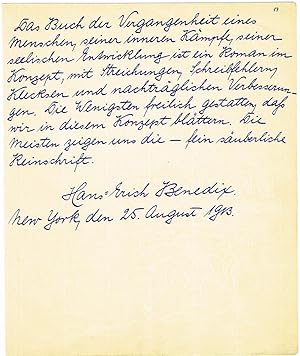 Das Buch der Vergangenheit eines
Menschen, seiner inneren Kämpfe, seiner
seelischen Entwicklung ist ein Roman im
Konzept, mit Streichungen, Schreibfehlern,
Klecksen und nachträglichen Verbesserun-
gen. Die Wenigsten freilich gestatten, daß
wir in diesem Konzept blättern. Die
Meisten zeigen uns die – fein säuberliche
Reinschrift.
Hans-Erich Benedix
New York, den 25. August